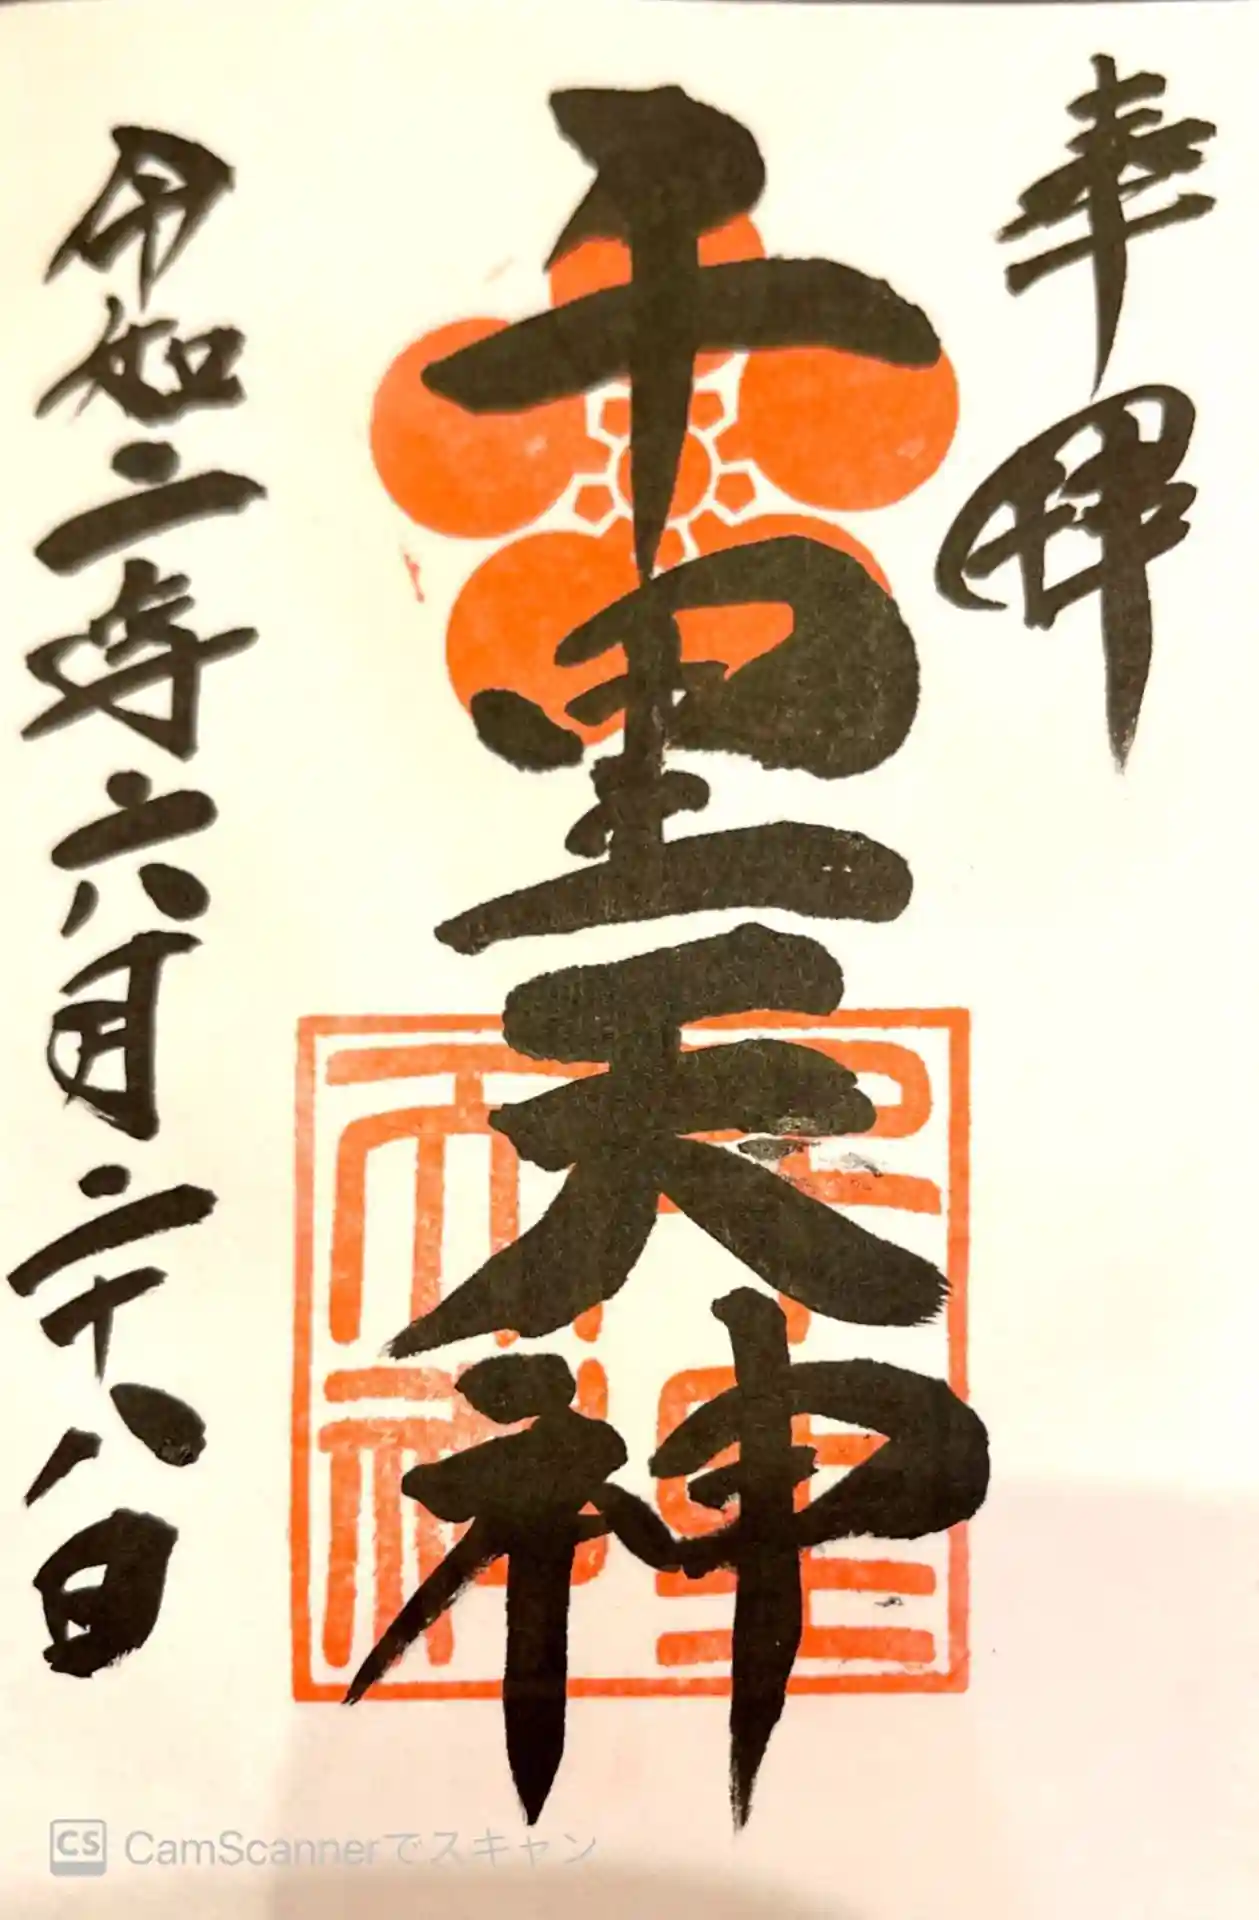 奉拝
千里天神
令和二年六月二十八日
千里天神
CS CamScannerでスキャン